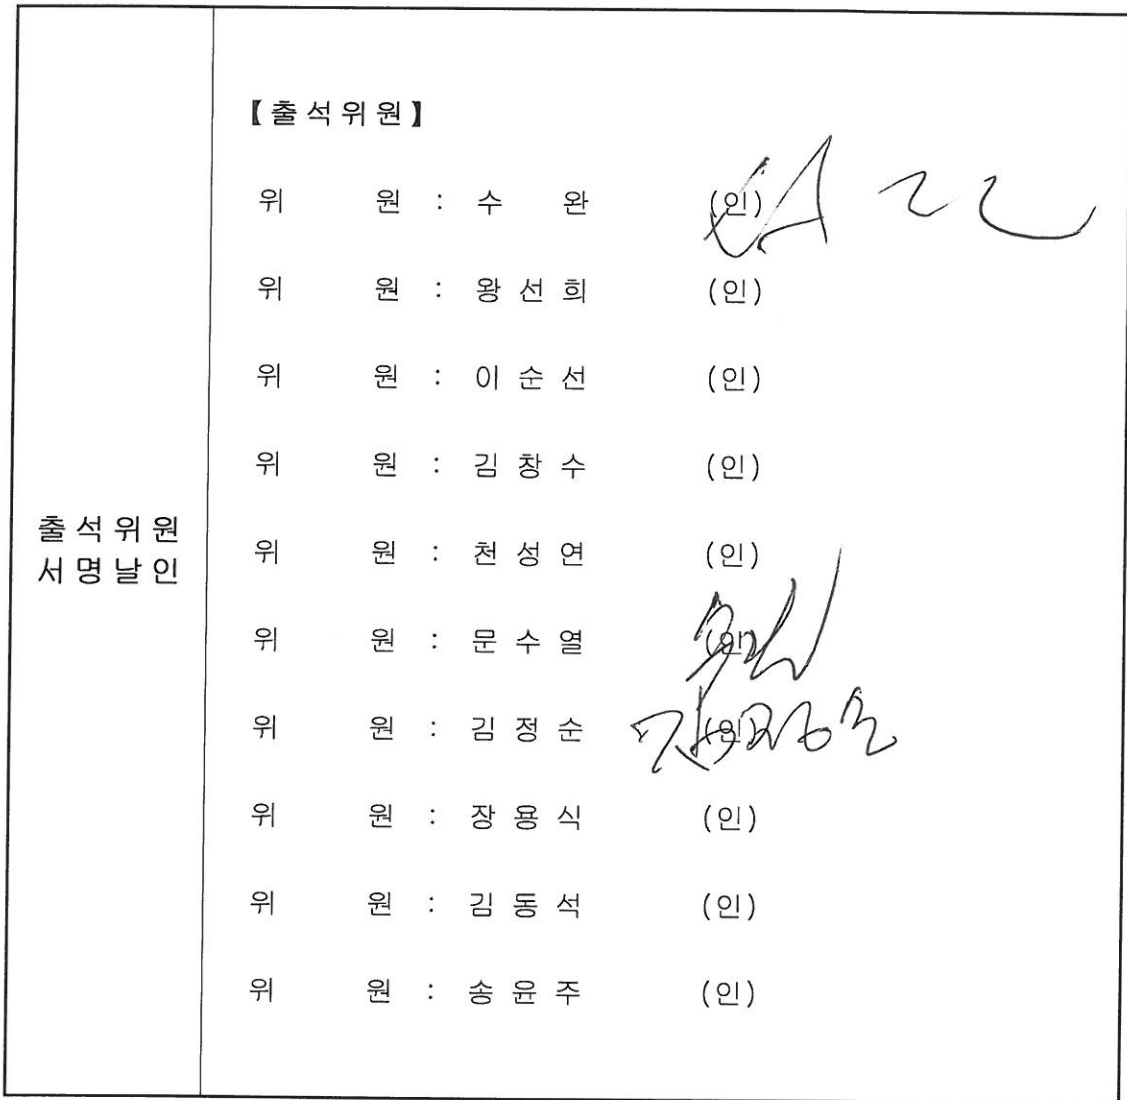 출석위원
서명날인
【출석위원】
위 원 : 수 완 (인)
위 원 : 왕선희 (인)
위 원 : 이순선 (인)
위 원 : 김창수 (인)
위 원 : 천성연 (인)
위 원 : 문수열 (인)
위 원 : 김정순 (인) 김정순
위 원 : 장용식 (인)
위 원 : 김동석 (인)
위 원 : 송윤주 (인)